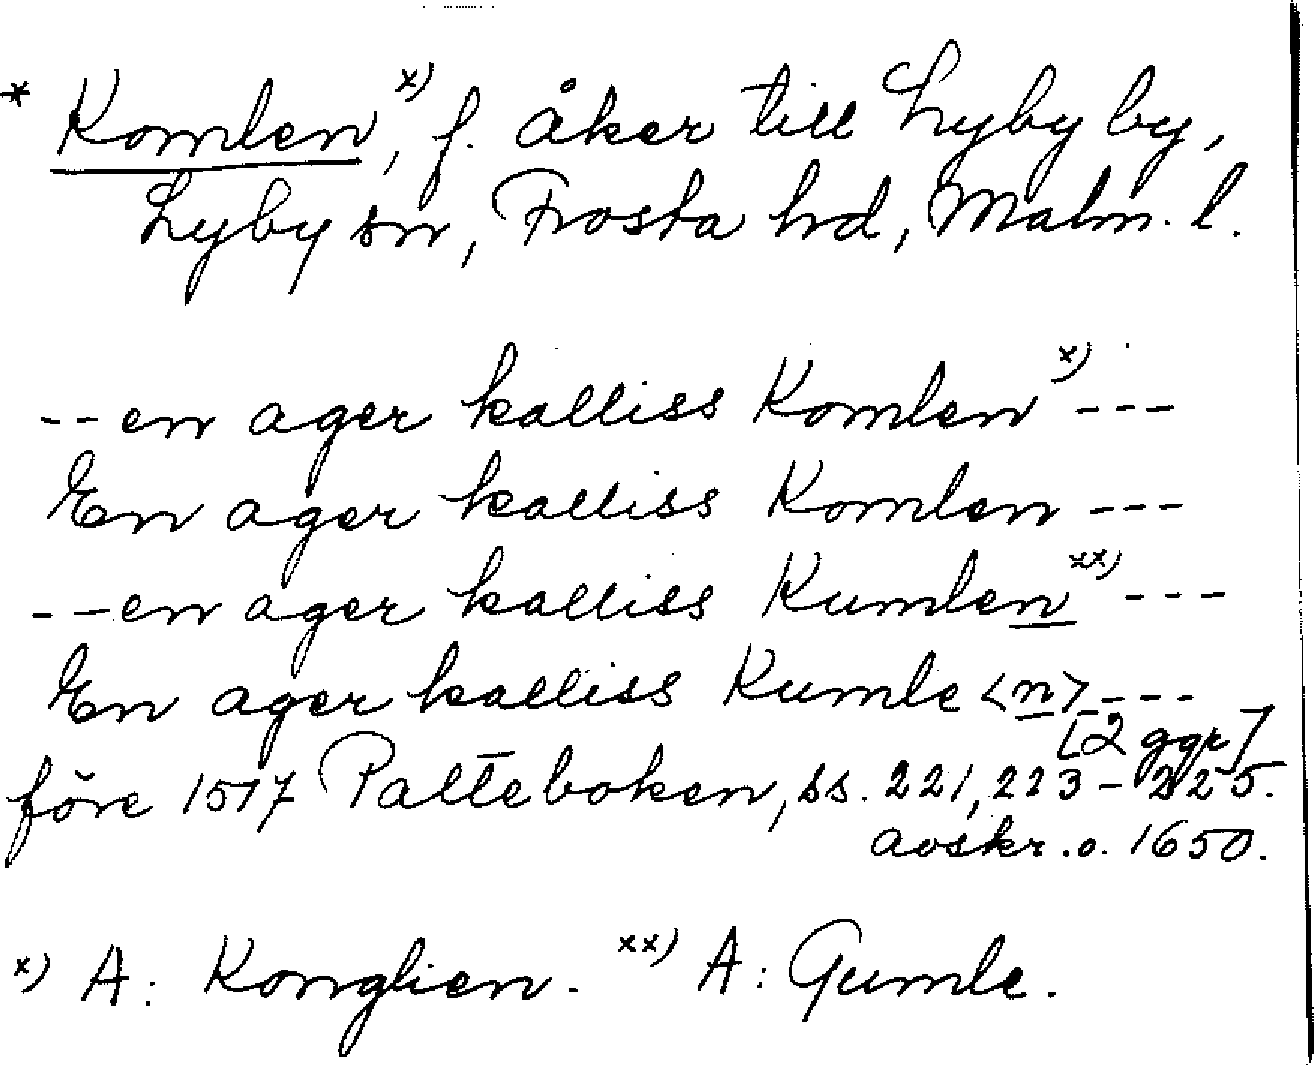 * Komlen,ˣ⁾ f. åker till Lyby by,
Lyby sn, Frosta hd, Malm. l.
--en ager kalliss Komlenˣ⁾---
En ager kalliss Komlen---
--en ager kalliss Kumlenˣˣ⁾---
En ager kalliss Kumle<n>---
[2 ggr]
före 1517 Palteboken, ss. 221, 223-225.
avskr. o. 1650.
ˣ⁾ A: Konglien. ˣˣ⁾ A: Gumle.